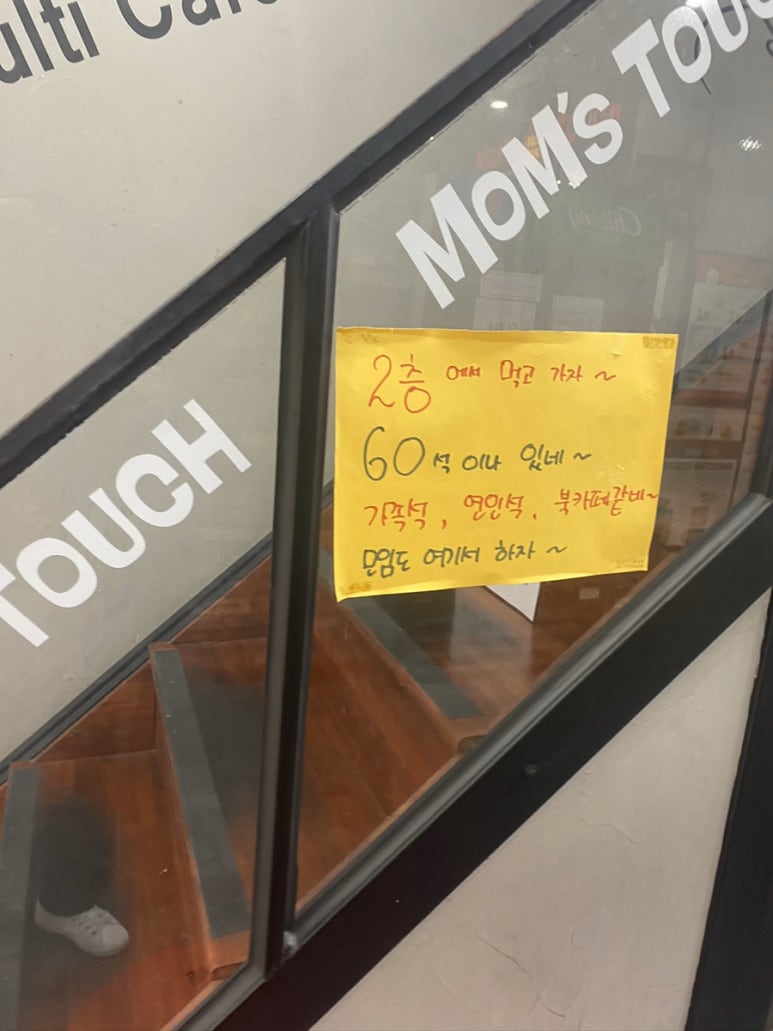 ulti Caf
MOM'S TOU
TOUCH
2층에서 먹고 가자~
60석이나 있네~
가족석, 연인석, 북카페같네~
모임도 여기서 하자~
Chilsung